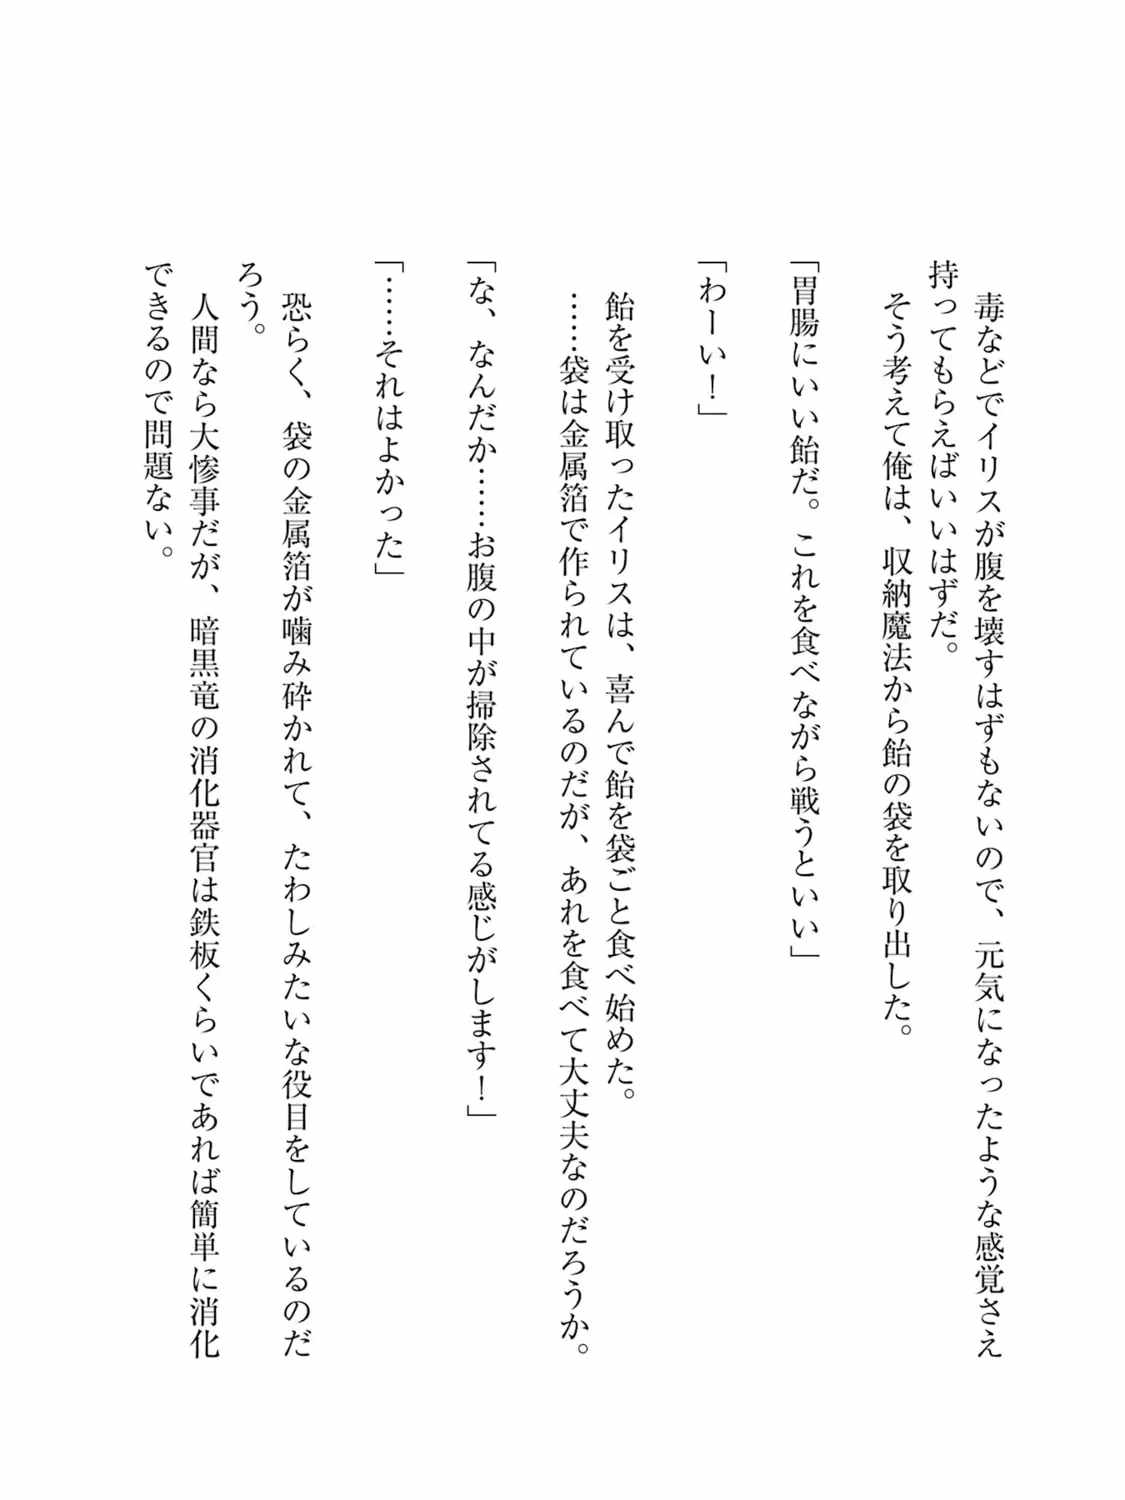 毒などでイリスが腹を壊すはずもないので、元気になったような感覚さえ
持ってもらえばいいはずだ。
そう考えて俺は、収納魔法から飴の袋を取り出した。
「胃腸にいい飴だ。これを食べながら戦うといい」
「わーい！」
飴を受け取ったイリスは、喜んで飴を袋ごと食べ始めた。
……袋は金属箔で作られているのだが、あれを食べて大丈夫なのだろうか。
「な、なんだか……お腹の中が掃除されてる感じがします！」
「……それはよかった」
恐らく、袋の金属箔が噛み砕かれて、たわしみたいな役目をしているのだ
ろう。
人間なら大惨事だが、暗黒竜の消化器官は鉄板くらいであれば簡単に消化
できるので問題ない。